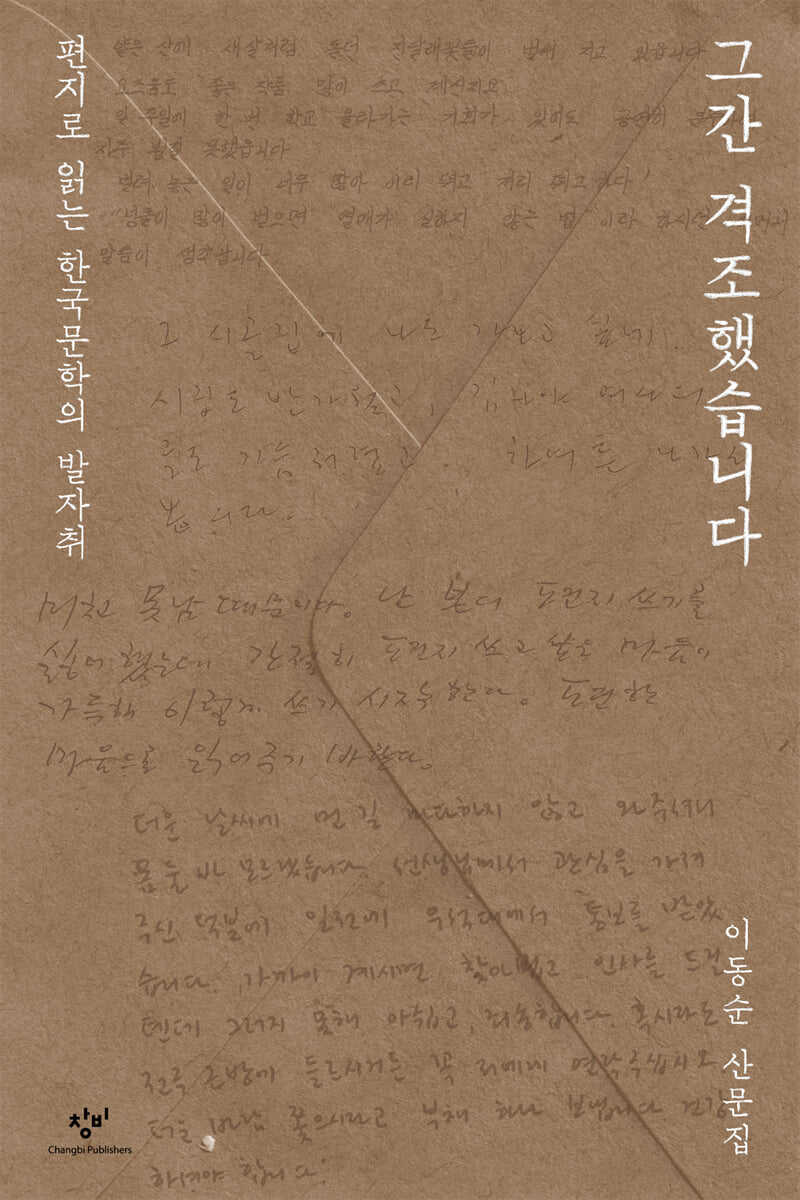 그간 격조했습니다
편지로 읽는 한국문학의 발자취
얕은 산에 새살처럼 돋던 진달래꽃들이 벌써 지고 있읍니다
요즈음도 좋은 작품 많이 쓰고 계신지요
일주일에 한 번 학교 올라가는 기회가 있어도
자주 뵙질 못했읍니다
벌려 놓은 일이 너무 많아 이리 뛰고 저리 뛰고 하다
"넝쿨이 많이 벋으면 열매가 실하지 않는 법"이라 하시던
말씀이 생각납니다
그 시골집에 나도 가보고 싶네.
시집도 반가웠고,
미친 못남 때문이다. 난 본디 편지 쓰기를
싫어했는데 간절히 편지 쓰고 싶은 마음이
가득해 이렇게 쓰기 시작한다. 편한
마음으로 읽어주기 바란다.
더운 날씨에 먼 길 마다하지 않고 와주셔서
몸 둘 바 모르겠습니다. 선생님께서 관심을 가져
주신 덕분에 일전에 우석대에서 통보를 받았
습니다. 가까이 계시면 찾아뵙고 인사를 드릴
텐데 그러지 못해 아쉽고, 죄송합니다. 혹시라도
전주 근방에 들르시거든 꼭 저에게 연락주십시오.
더운 바람 쫓으시라고 부채 하나 보냅니다. 건강
하셔야 합니다.
이동순 산문집
창비
Changbi Publishers